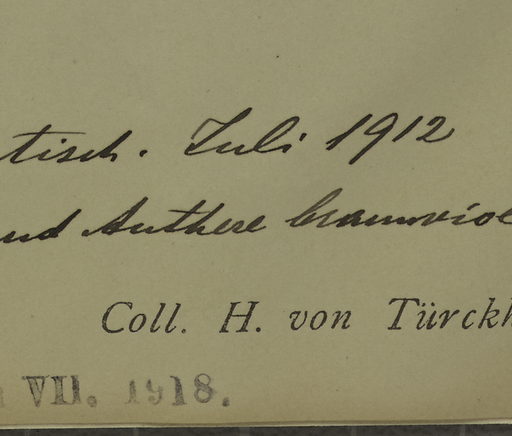 tisch. Juli 1912
und Anthere braunviol
Coll. H. von Türckh
VII. 1918.